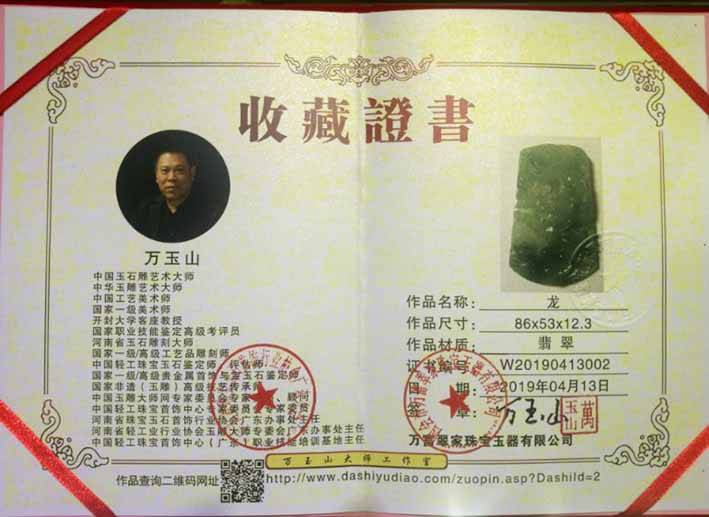 收藏證書
万玉山
中国玉石雕艺术大师
中华玉雕艺术大师
中国工艺美术师
国家一级美术师
开封大学客座教授
国家职业技能鉴定高级考评员
河南省玉石雕刻大师
国家一级/高级工艺品雕刻师
中国轻工珠宝玉石鉴定师，评估师
国家一级/高级贵金属首饰与宝玉石鉴定师
国家非遗（玉雕）高级技艺传承师
中国玉雕大师网专家委员会专家、顾问
中国轻工珠宝首饰中心专家委员会专家委员
河南省珠宝玉石首饰行业协会广东办事处主任
河南省轻工业行业协会玉雕大师专委会广东办事处主任
中国轻工珠宝首饰中心（广东）职业技能培训基地主任
作品名称：龙
作品尺寸：86x53x12.3
作品材质：翡翠
证书编号：W20190413002
日期：2019年04月13日
签章：万玉山
萬玉山
万富翠家珠宝玉器有限公司
万玉山大师工作室
作品查询二维码网址
http://www.dashiyudiao.com/zuopin.asp?DashiId=2